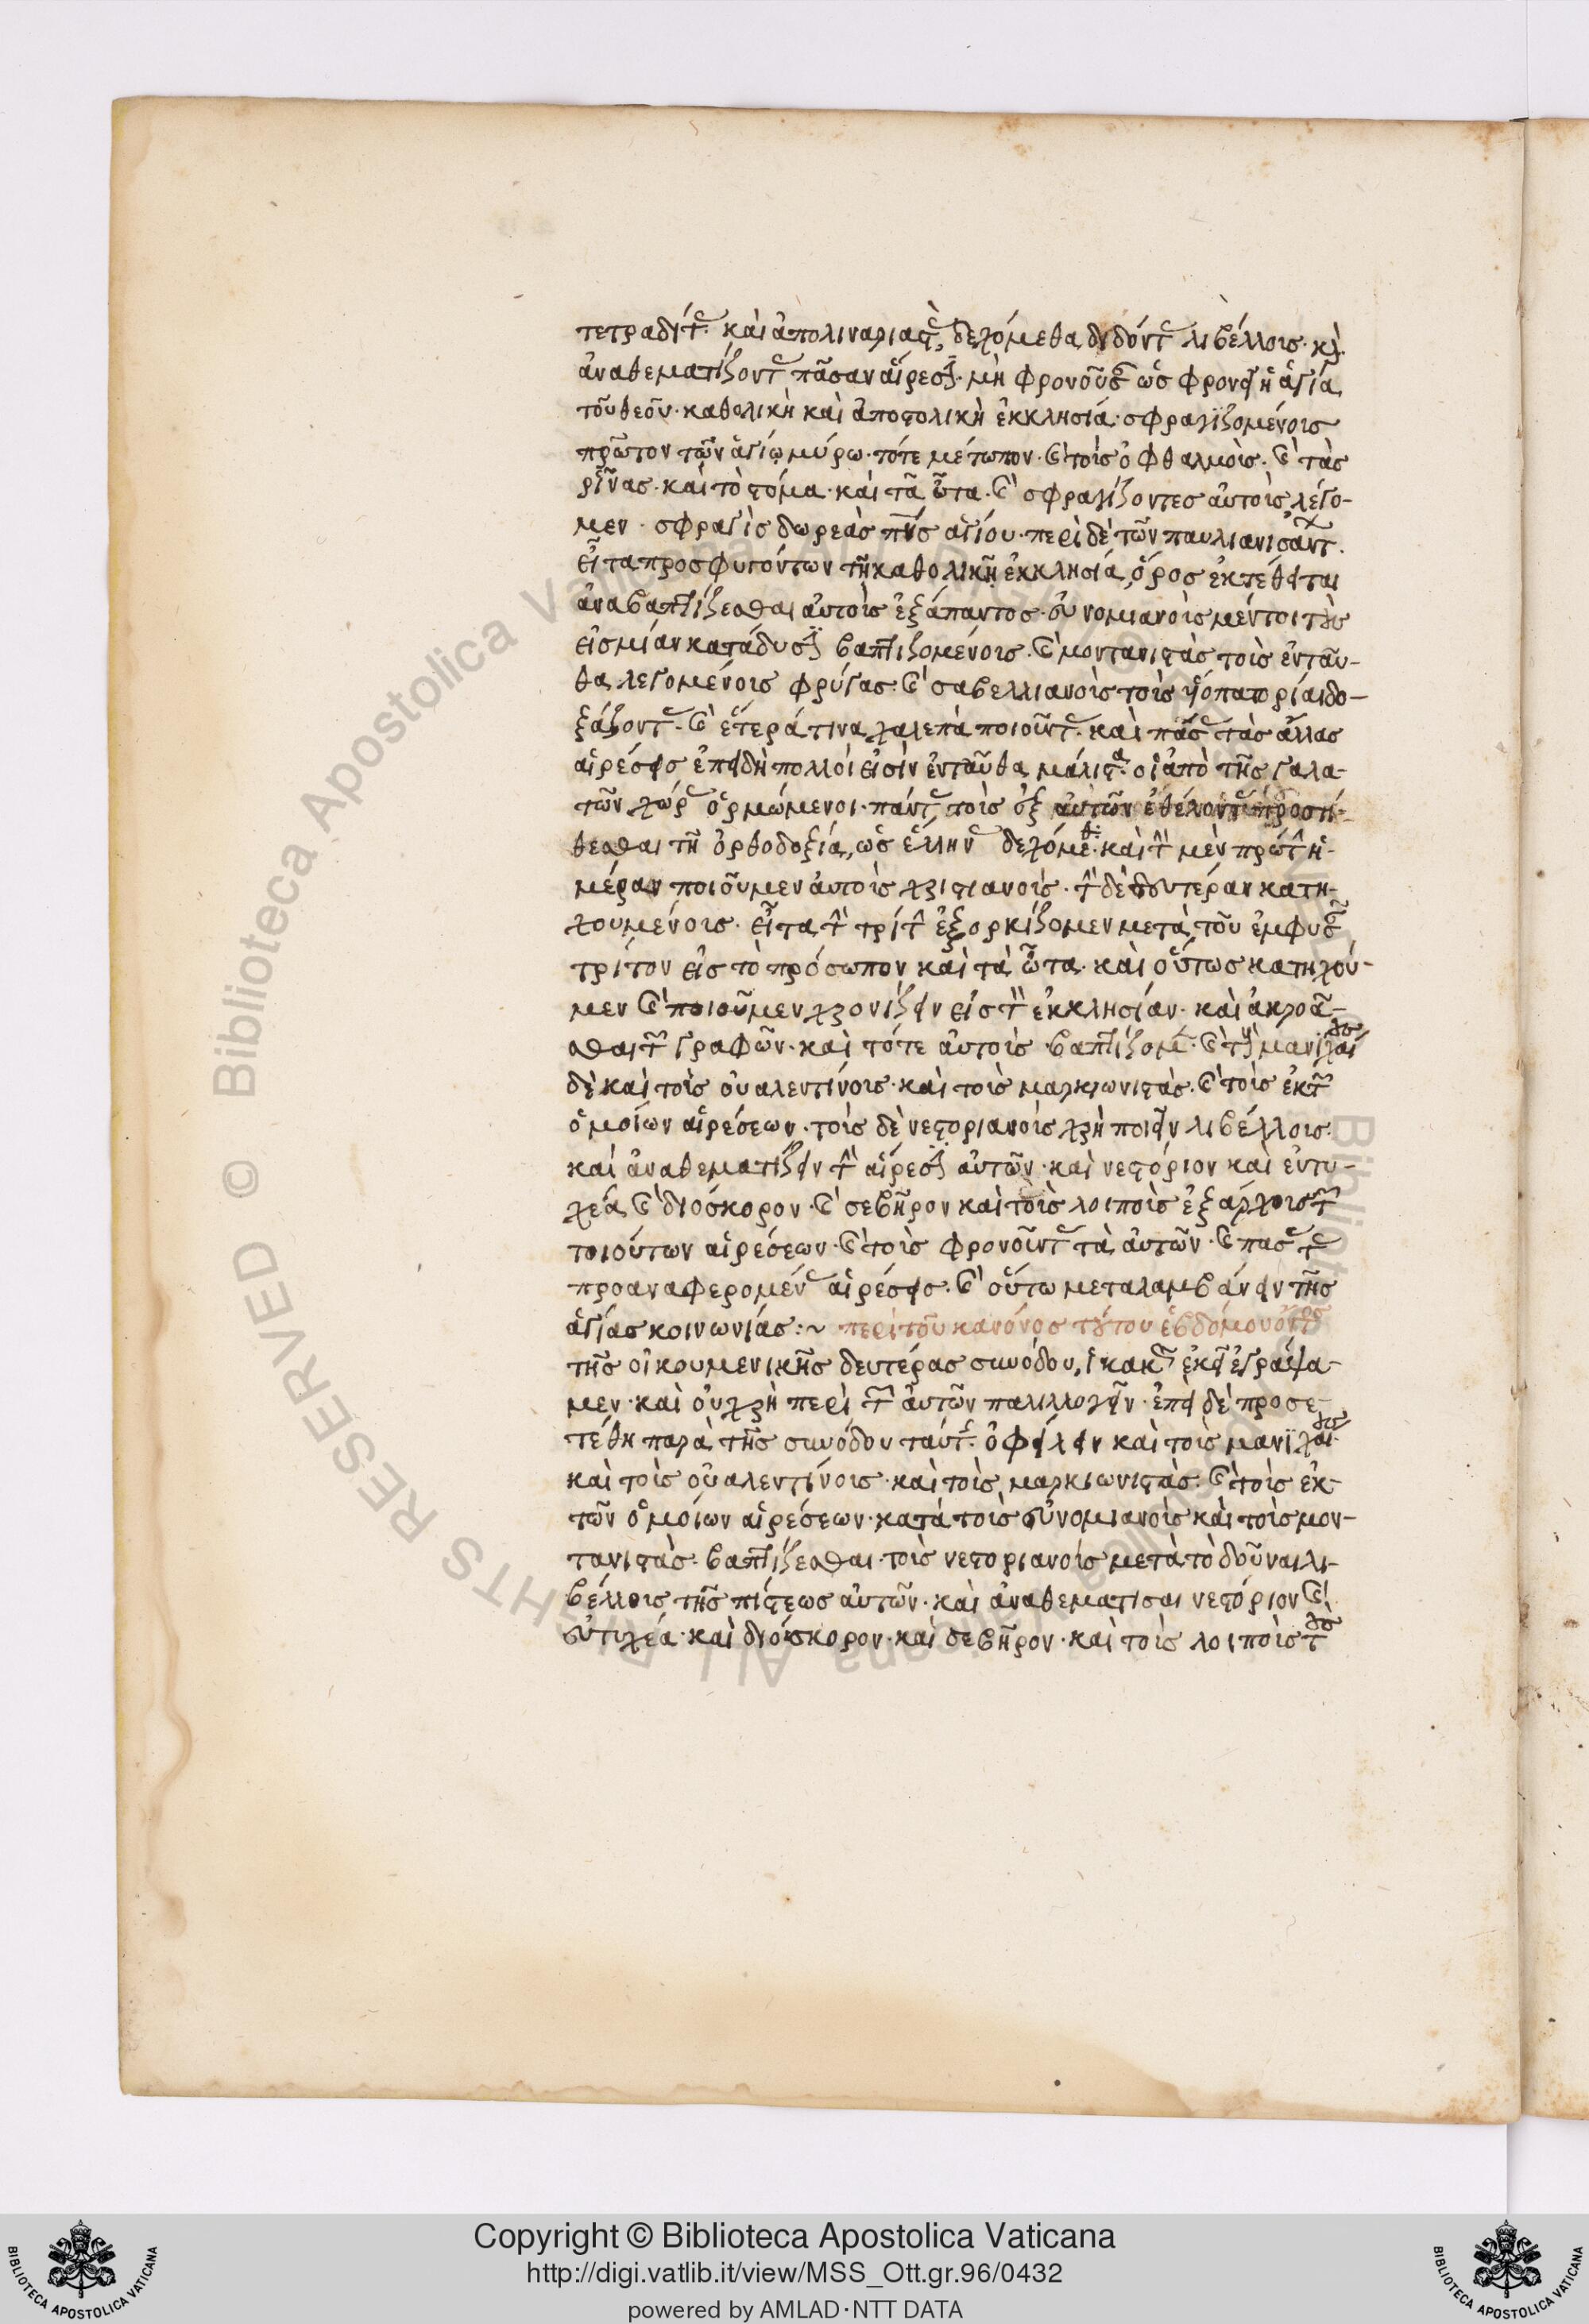 τετραδίτ καὶ ἀπολιναριας, δεχόμεθα διδόντ λιβέλλοις. κ
ἀναθεματίζοντ πᾶσαν αἵρεσ· μὴ φρονοῦσ ὡς φρονεῖ ἡ ἁγία
τοῦ θεοῦ· καθολικὴ καὶ ἀποστολικὴ ἐκκλησία· σφραγιζομένοις
πρῶτον τῶν ἁγίω μύρω· τότε μέτωπον· καὶ τοὶς ὀφθαλμοὶς· καὶ τὰς
ρῖνας· καὶ τὸ στόμα· καὶ τὰ ὦτα· καὶ σφραγίζοντες αὐτοὶς λέγο-
μεν· σφραγὶς δωρεὰς πνς ἁγίου· περὶ δὲ τῶν παυλιανισάντ·
εἶτα προσφυγόντων τῆ καθολικῆ ἐκκλησία, ὅρος ἐκτέθειται
ἀναβαπτίζεσθαι αὐτοὶς ἐξάπαντος· εὐνομιανοὶς μέντοι τοὺς
εἰς μίαν κατάδυσ βαπτιζομένοις· καὶ μοντανιστὰς τοὶς ἐνταυ-
θα λεγομένοις φρύγας· καὶ σαβελλιανοὶς τοὶς υἱοπατορίαν δο-
ξάζοντ· καὶ ἕτερά τινα χαλεπὰ ποιοῦντ· καὶ πάσ τὰς ἄλλας
αἱρέσεις ἐπειδὴ πολλοί εἰσὶν ἐνταῦθα μάλιστα· οἱ ἀπὸ τῆς γαλα-
τῶν χώρ ὁρμώμενοι· πάντ τοὶς ἐξ αὐτῶν ἐθέλοντ προστί-
θεσθαι τῆ ὀρθοδοξία, ὡς ἕλλην δεχόμεθ· καὶ τ μὲν πρώτ ἡ-
μέραν ποιοῦμεν αὐτοὶς χριστιανοὶς· τ δὲ δευτέραν κατη-
χουμένοις· εἶτα τ τρίτ ἐξορκίζομεν μετὰ τοῦ ἐμφυσ
τρίτον εἰς τὸ πρόσωπον καὶ τὰ ὦτα· καὶ οὕτως κατηχού-
μεν καὶ ποιοῦμεν χρονίζειν εἰς τ ἐκκλησίαν· καὶ ἀκροᾶ-
σθαι τ γραφῶν· καὶ τότε αὐτοὶς βαπτίζομ· καὶ μανιχαί
δὲ καὶ τοὶς οὐαλεντίνοις· καὶ τοὶς μαρκιωνιστὰς· καὶ τοὶς ἐκ τ
ὁμοίων αἱρέσεων· τοὶς δὲ νεστοριανοὶς χρὴ ποιεῖν λιβέλλοις·
καὶ ἀναθεματίζειν τ αἵρεσ αὐτῶν· καὶ νεστόριον καὶ εὐτυ-
χέα καὶ διόσκορον· καὶ σεβῆρον καὶ τοὶς λοιποὶς ἐξάρχοις τ
τοιούτων αἱρέσεων· καὶ τοὶς φρονοῦντ τὰ αὐτῶν· καὶ πασ τ
προαναφερομέν αἱρέσεις· καὶ οὕτω μεταλαμβάνειν τῆς
ἁγίας κοινωνίας:~ περὶ τοῦ κανόνος τούτου ἑβδόμου ὄντος
τῆς οἰκουμενικῆς δευτέρας συνόδου, κακ ἐκεῖ ἐγράψα-
μεν· καὶ οὐ χρὴ περὶ τ αὐτῶν παλιλλογεῖν· ἐπεὶ δὲ προσε-
τέθη παρὰ τῆς συνόδου ταύτ· ὀφείλειν καὶ τοὶς μανιχαί
καὶ τοὶς οὐαλεντίνοις· καὶ τοὶς μαρκιωνιστὰς· καὶ τοὶς ἐκ
τῶν ὁμοίων αἱρέσεων· κατὰ τοὶς εὐνομιανοὶς καὶ τοὶς μον-
τανιστὰς· βαπτίζεσθαι· τοὶς νεστοριανοὶς μετὰ τὸ δοῦναι λι-
βέλλοις τῆς πίστεως αὐτῶν· καὶ ἀναθεματίσαι νεστόριον καὶ
εὐτιχέα· καὶ διόσκορον· καὶ σεβῆρον· καὶ τοὶς λοιποὶς τ
Copyright © Biblioteca Apostolica Vaticana
http://digi.vatlib.it/view/MSS_Ott.gr.96/0432
powered by AMLAD·NTT DATA